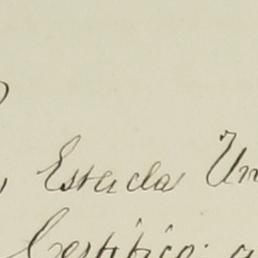 , Estada Un
Certifico: a